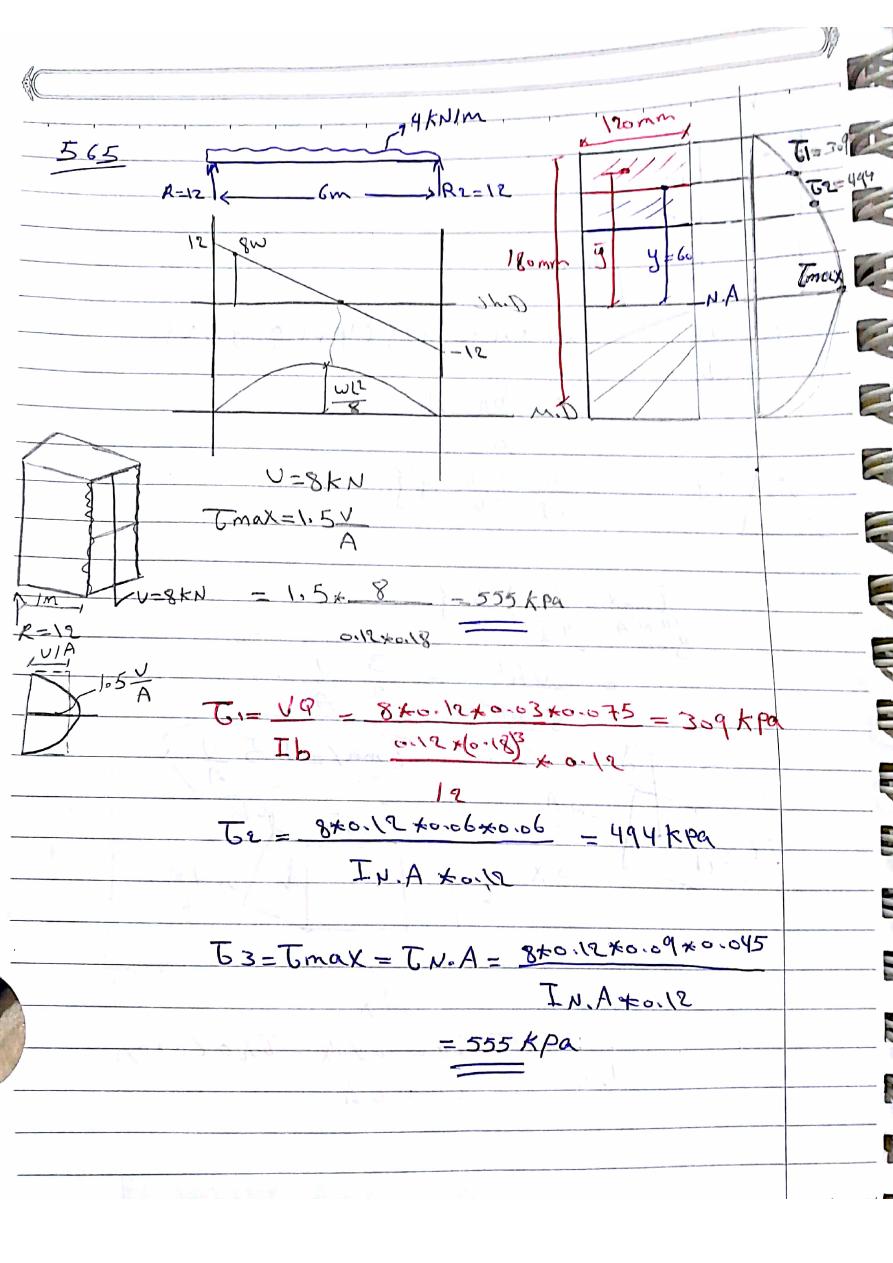 565
4 KN/m
R=12
6m
R2=12
12
8W
Sh.D
-12
WL²/8
M.D
120mm
180mm
ȳ
y=60
N.A
τ1=309
τ2=494
τmax
V=8KN
τmax=1.5 V/A
1m
V=8KN
R=12
= 1.5 * 8 / 0.12*0.18 = 555 kpa
V/A
1.5 V/A
τ1 = VQ / Ib = 8*0.12*0.03*0.075 / 0.12*(0.18)³/12 * 0.12 = 309 kpa
τ2 = 8*0.12*0.06*0.06 / I N.A *0.12 = 494 kpa
τ3 = τmax = τN.A = 8*0.12*0.09*0.045 / I N.A *0.12
= 555 kpa